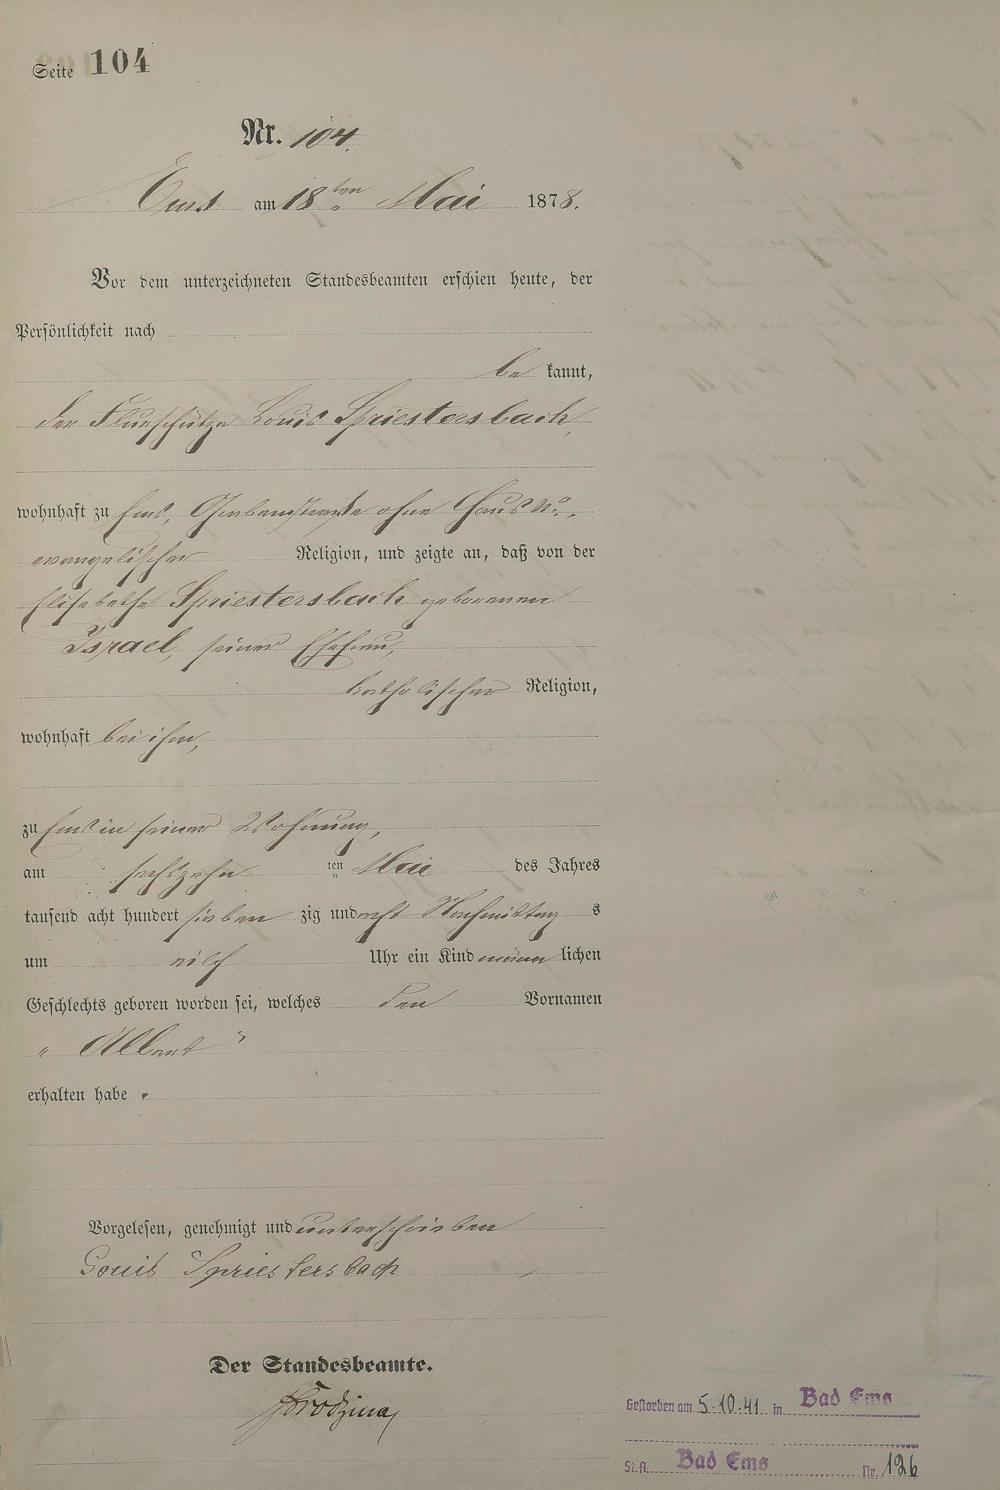 Seite 104
Nr. 104.
Ems am 18ten Mai 1878.
Vor dem unterzeichneten Standesbeamten erschien heute, der
Persönlichkeit nach
be kannt,
der Flurschütze Louis Spriestersbach,
wohnhaft zu Ems, Grabenstraße ohne Haus No.,
evangelischer Religion, und zeigte an, daß von der
Elisabethe Spriestersbach geborenen
Israel, seiner Ehefrau,
katholischer Religion,
wohnhaft bei ihm,
zu Ems in seiner Wohnung,
am sechszehn ten Mai des Jahres
tausend acht hundert sieben zig und acht Nachmittag s
um eilf Uhr ein Kind männ lichen
Geschlechts geboren worden sei, welches den Vornamen
„ Albert “
erhalten habe.
Vorgelesen, genehmigt und unterschrieben
Louis Spriestersbach
Der Standesbeamte.
Gestorben am 5.10.41 in Bad Ems
St.A. Bad Ems Nr. 126